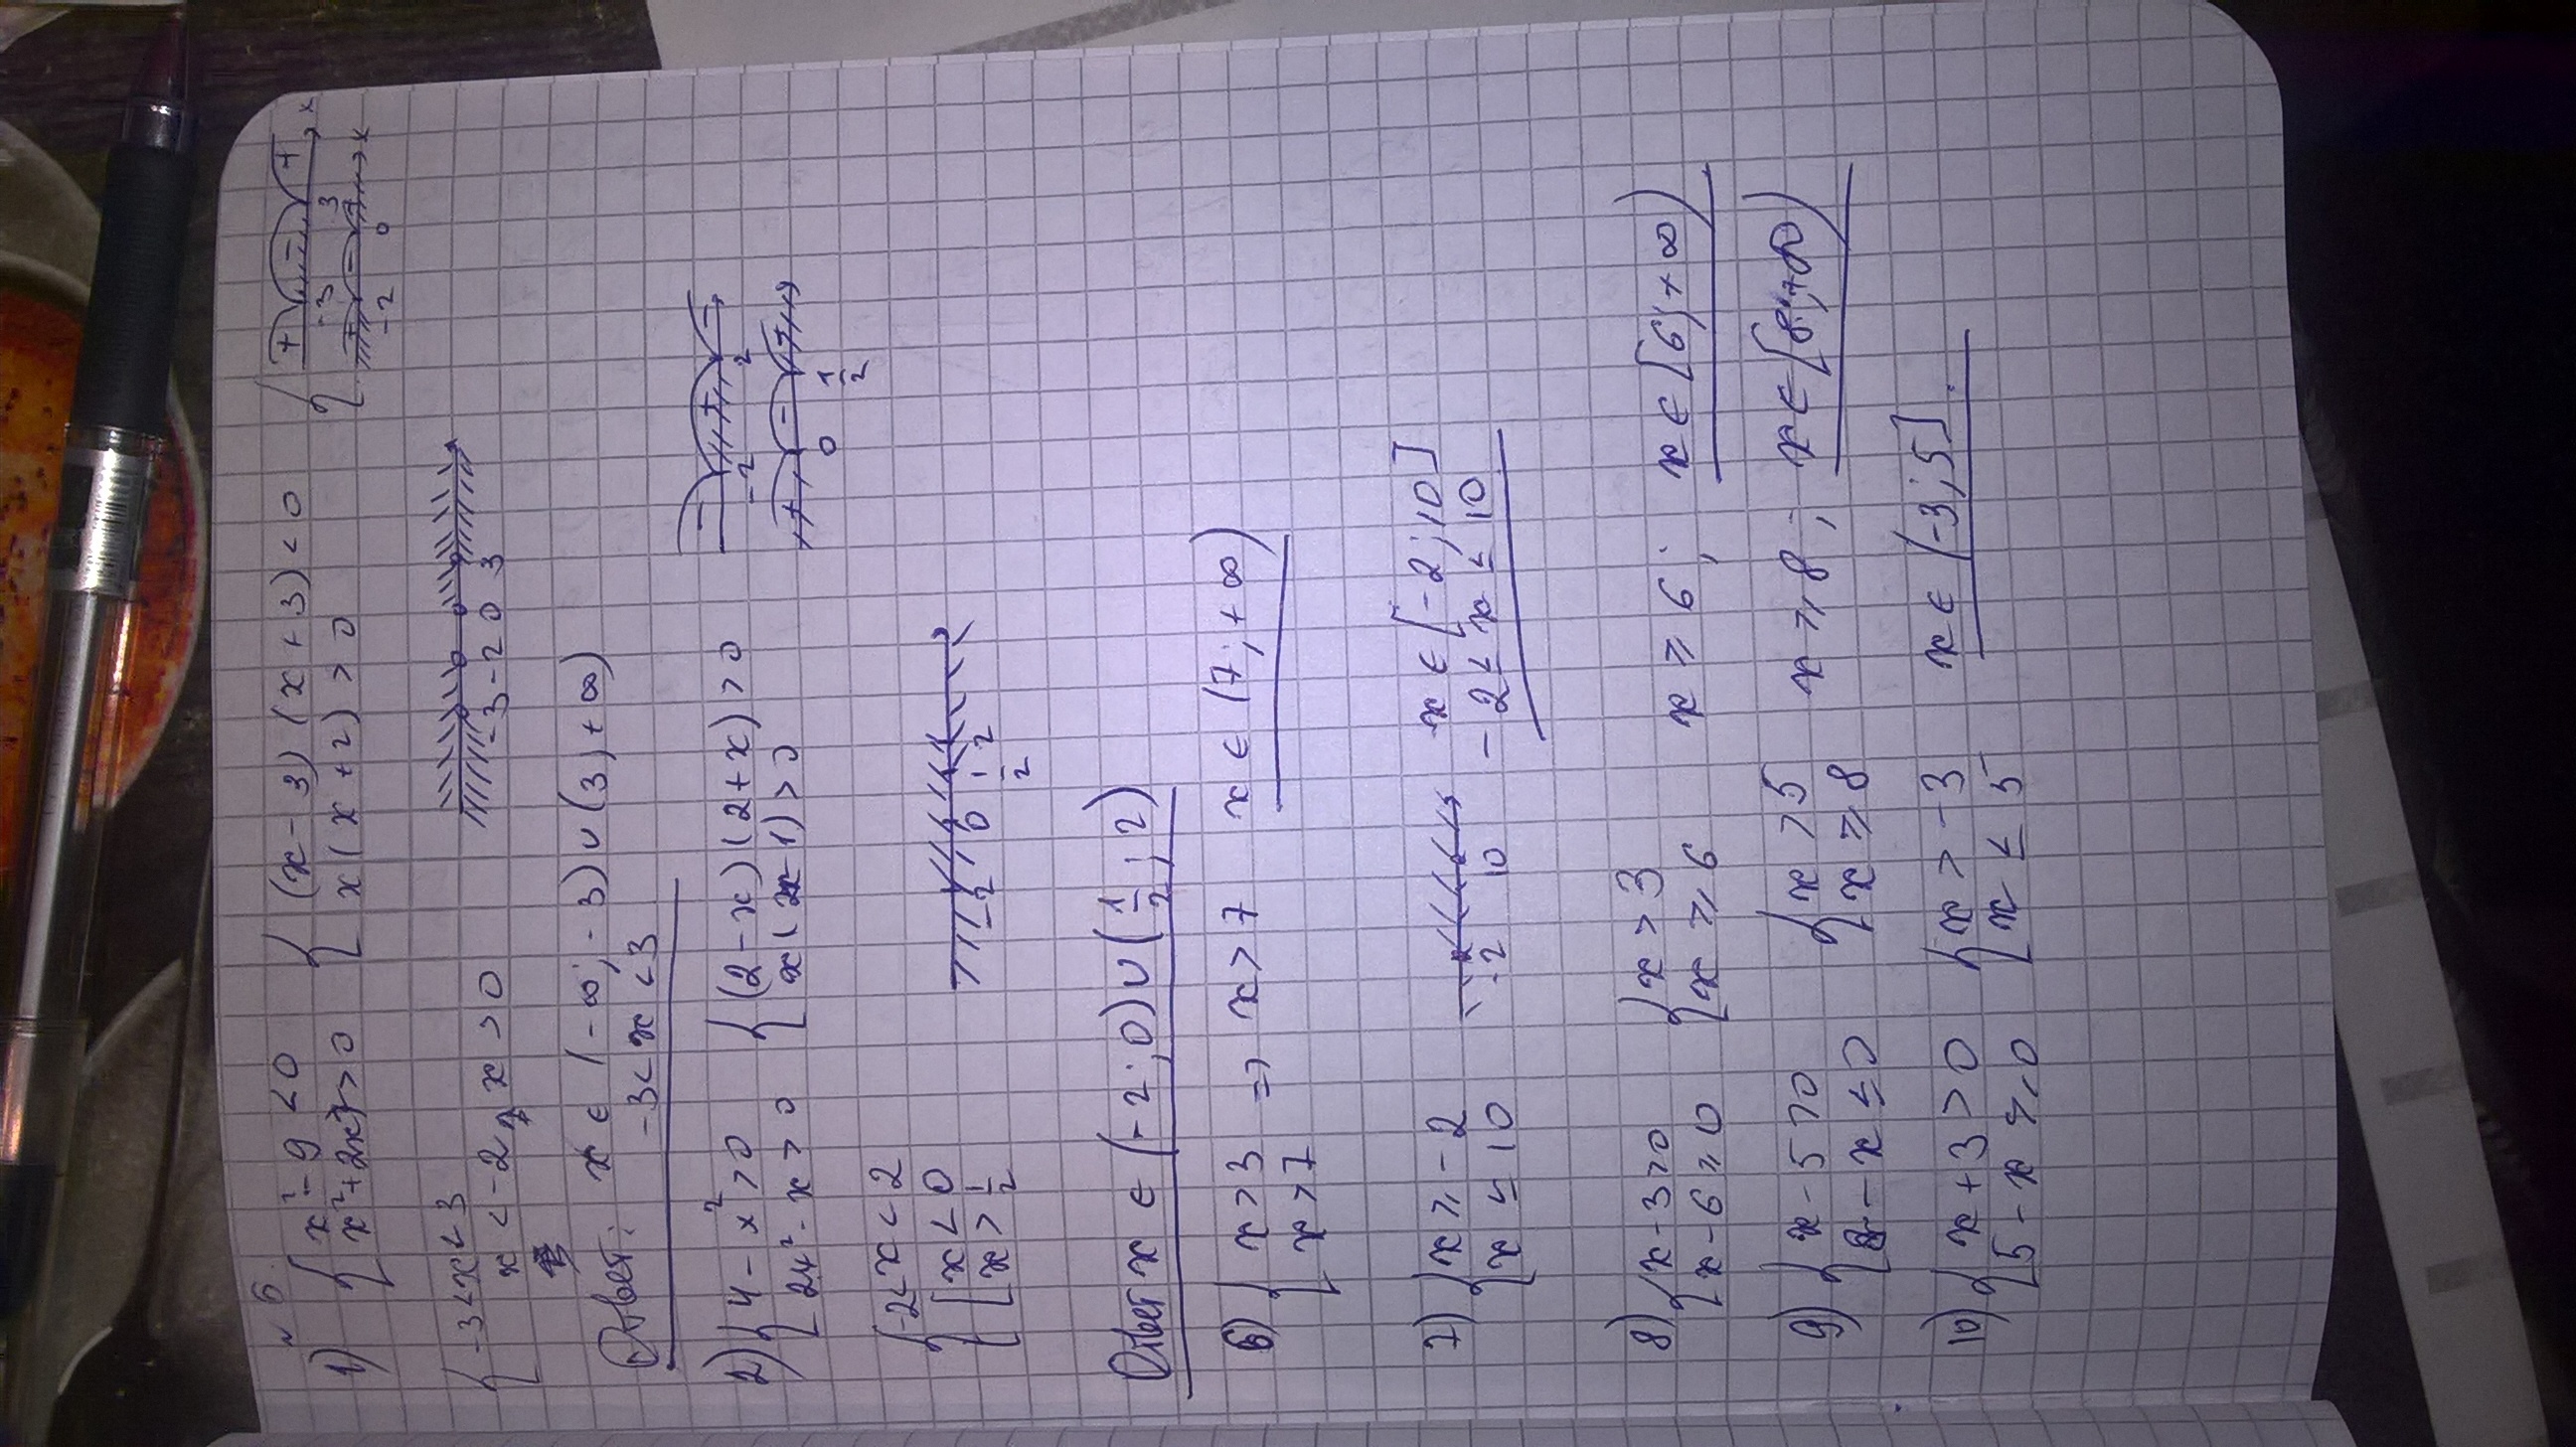 N 6.
1) { x² - 9 < 0 { (x - 3)(x + 3) < 0
x² + 2x > 0 x(x + 2) > 0
+ - + x
-3 3
+ - + x
-2 0
{ -3 < x < 3
x < -2, x > 0
-3 -2 0 3
Ответ: x ∈ (-∞; -3) ∪ (3; +∞)
-3 < x < 3
2) { 4 - x² > 0 { (2 - x)(2 + x) > 0
2x² - x > 0 x(2x - 1) > 0
- + -
-2 2
+ - +
0 1/2
{ -2 < x < 2
[ x < 0
x > 1/2
-2 0 1/2 2
Ответ x ∈ (-2; 0) ∪ (1/2; 2)
6) { x > 3 => x > 7 x ∈ (7; +∞)
x > 7
7) { x ≥ -2 x ∈ [-2; 10]
x ≤ 10 -2 10 -2 ≤ x ≤ 10
8) { x - 3 > 0 { x > 3 x ≥ 6; x ∈ [6; +∞)
x - 6 ≥ 0 x ≥ 6
9) { x - 5 > 0 { x > 5 x ≥ 8; x ∈ [8; +∞)
8 - x ≤ 0 x ≥ 8
10) { x + 3 > 0 { x > -3 x ∈ (-3; 5].
5 - x ≥ 0 x ≤ 5